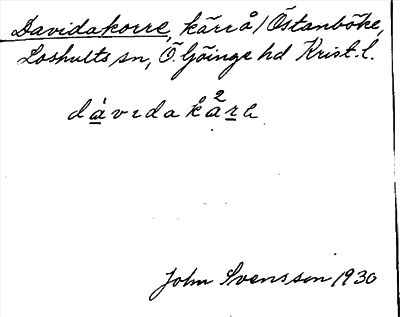 Davidakorre, kärr å Östanböke,
Loshults sn, Ö. Göinge hd Krist. l.
dàvidakår̀e
John Svensson 1930